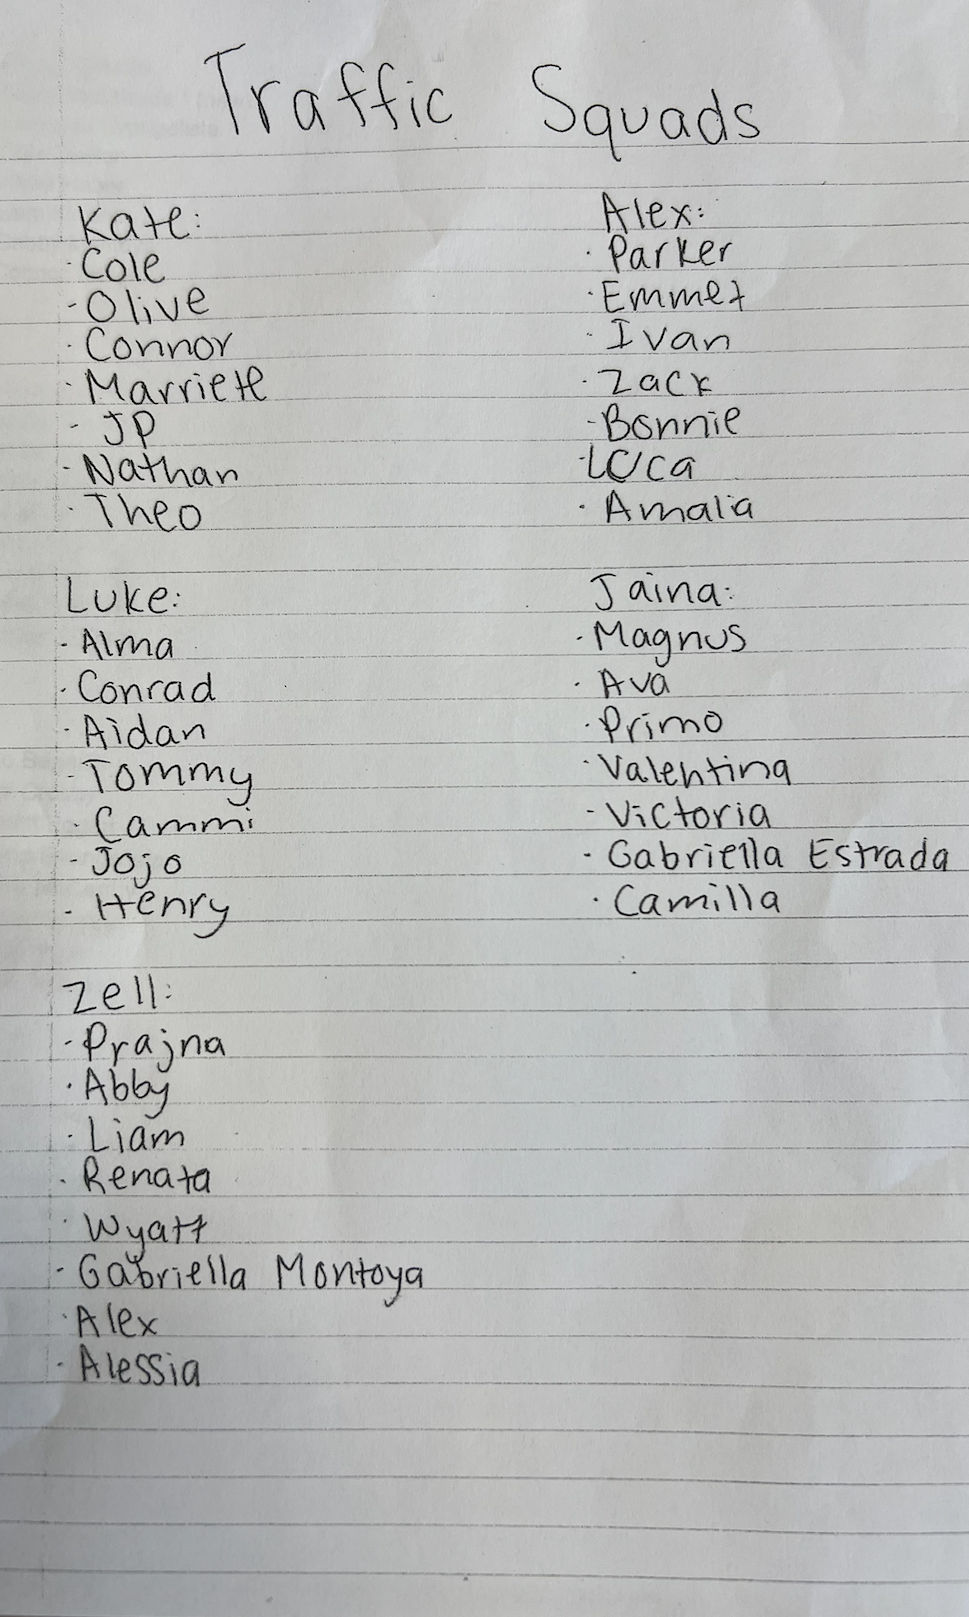 Traffic Squads
Kate:
· Cole
- Olive
· Connor
· Marriete
- JP
- Nathan
· Theo
Alex:
· Parker
· Emmet
· Ivan
· Zack
- Bonnie
· Luca
· Amalia
Luke:
· Alma
· Conrad
· Aidan
- Tommy
· Cammi
- Jojo
- Henry
Jaina:
· Magnus
· Ava
· Primo
· Valentina
- Victoria
- Gabriella Estrada
· Camilla
Zell:
- Prajna
· Abby
· Liam
· Renata
· Wyatt
- Gabriella Montoya
· Alex
· Alessia